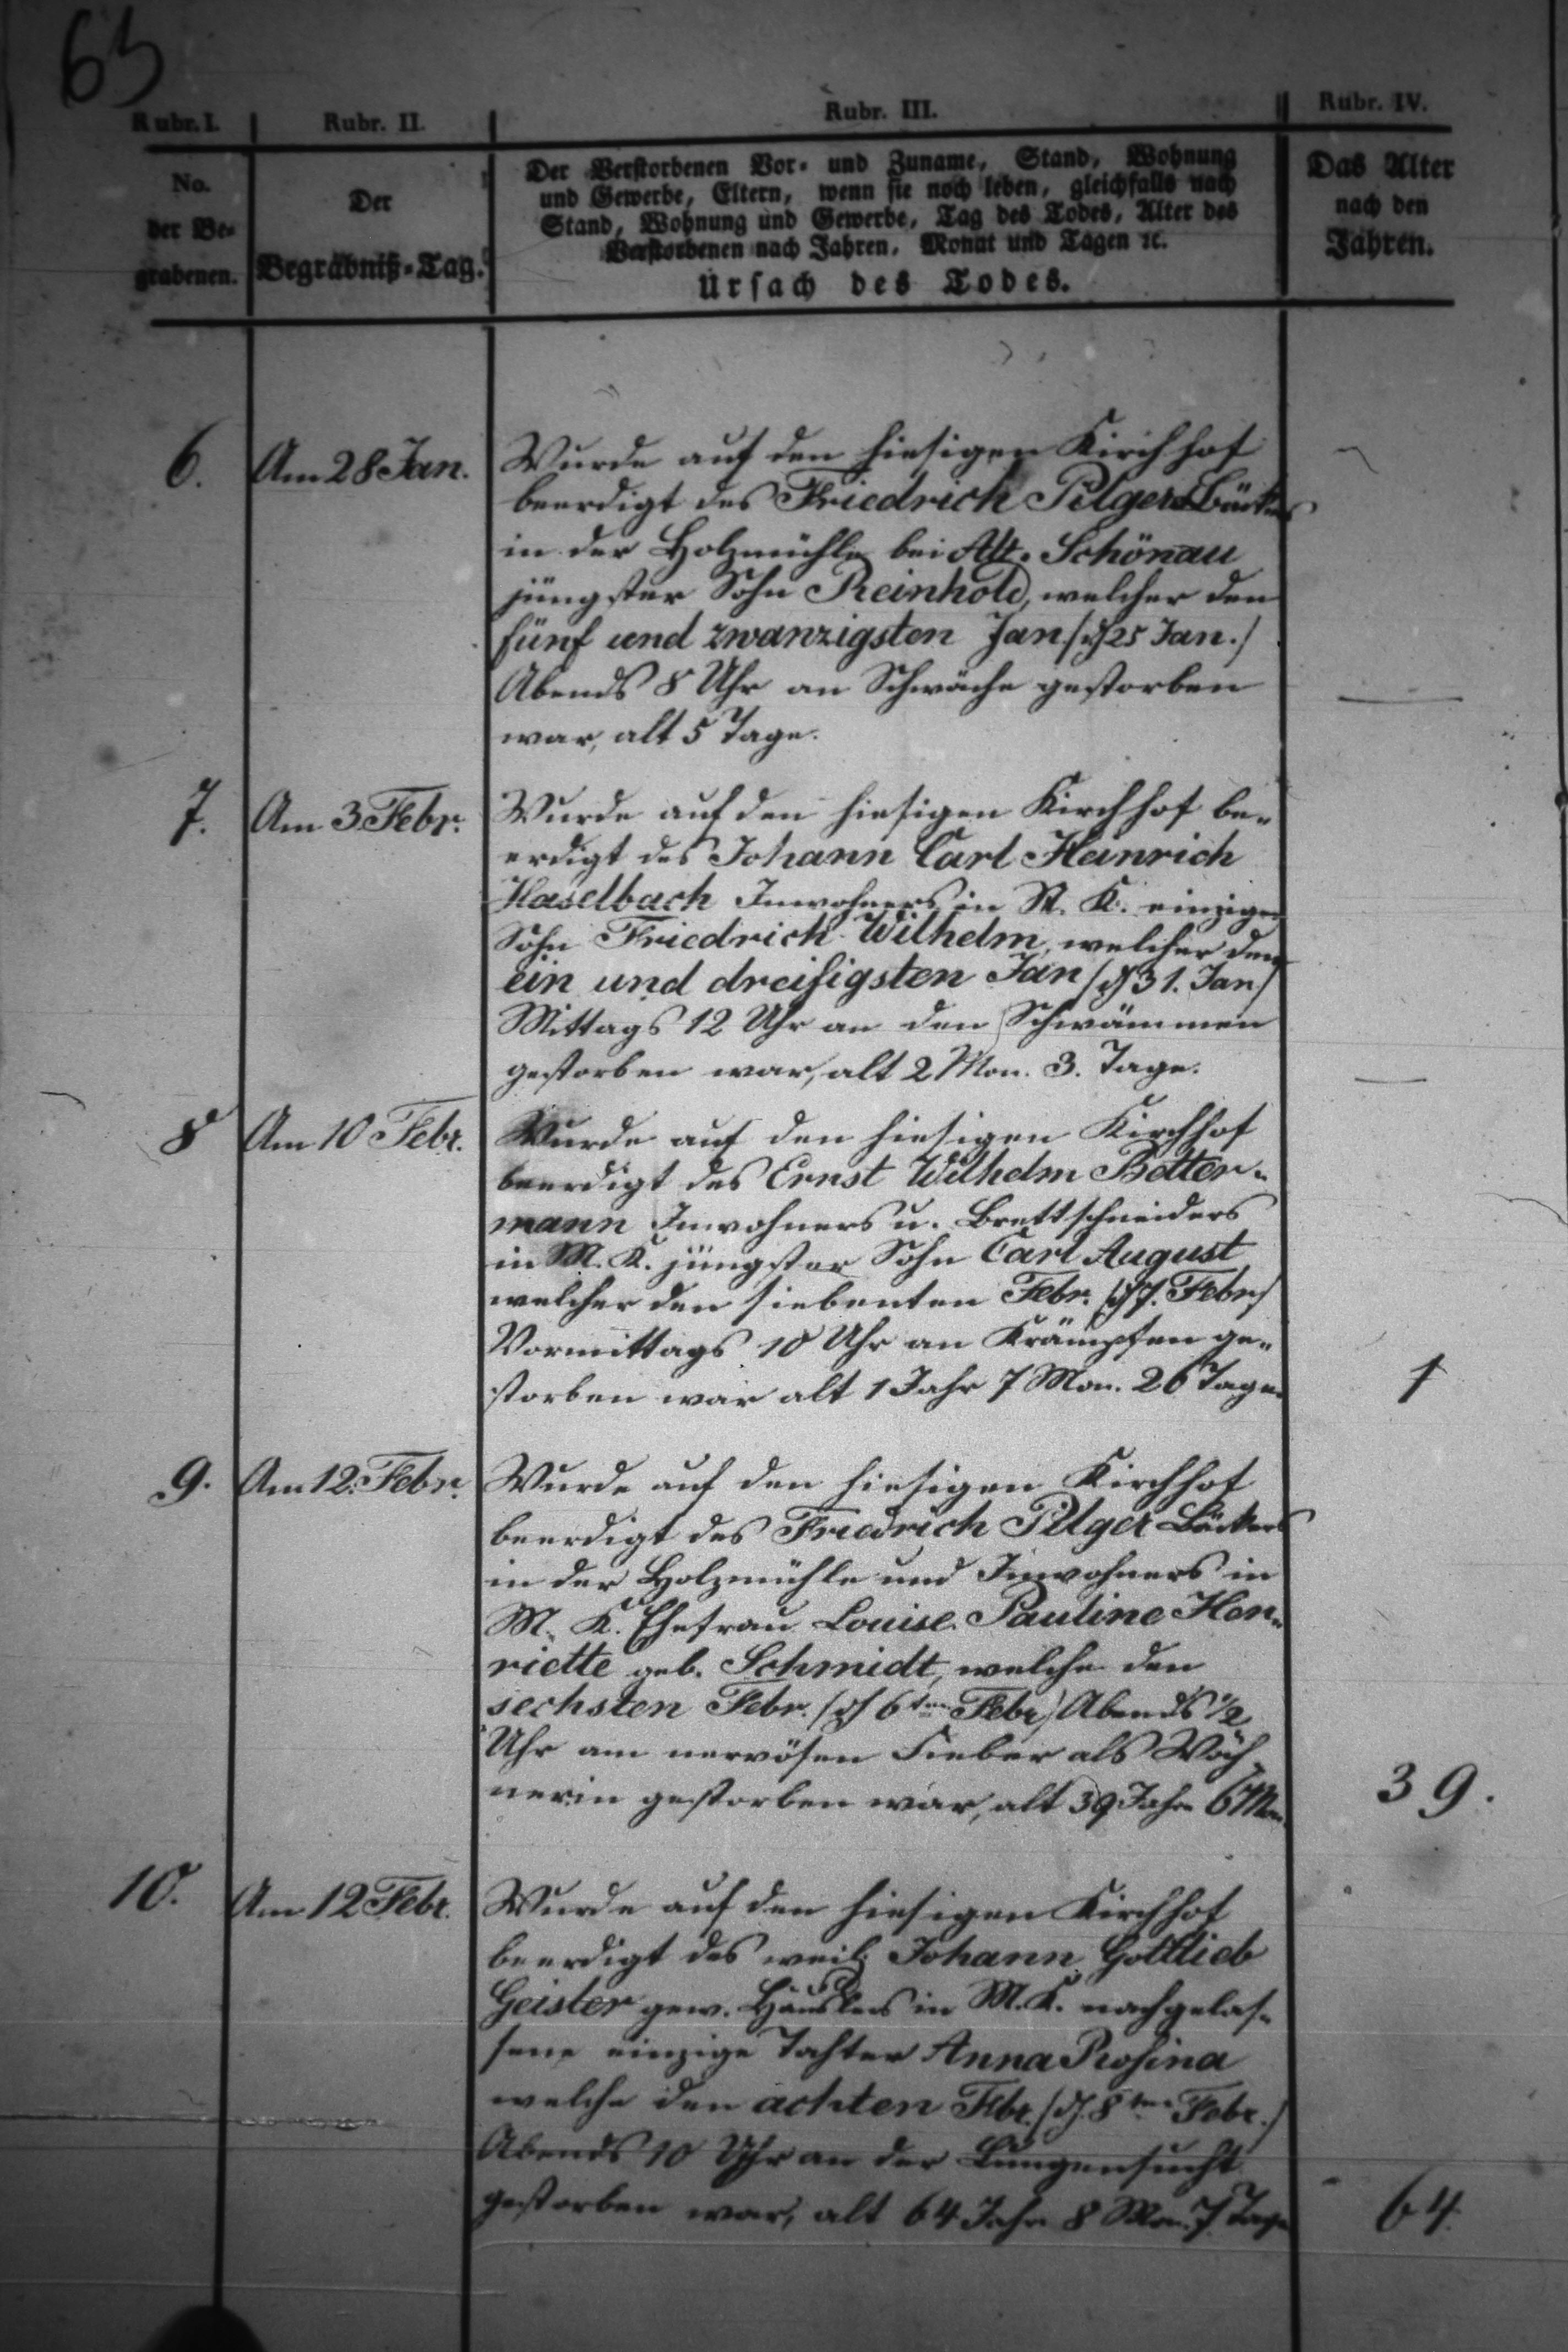 65
Rubr. I. Rubr. II. Rubr. III. Rubr. IV.
No.
der Be-
grabenen.
Der
Begräbniß-Tag.
Der Verstorbenen Vor- und Zuname, Stand, Wohnung
und Gewerbe, Eltern, wenn sie noch leben, gleichfalls nach
Stand, Wohnung und Gewerbe, Tag des Todes, Alter des
Verstorbenen nach Jahren, Monat und Tagen ꝛc.
Ursach des Todes.
Das Alter
nach den
Jahren.
6. Am 28 Jan. Wurde auf den hiesigen Kirchhof
beerdigt des Friedrich Pilgers Bäckers
in der Holzmühle bei Alt-Schönau
jüngster Sohn Reinhold, welcher den
fünf und zwanzigsten Jan. /d 25 Jan./
Abends 8 Uhr an Schwäche gestorben
war, alt 5 Tage. —
7. Am 3. Febr. Wurde auf den hiesigen Kirchhof be-
erdigt des Johann Carl Heinrich
Haselbach Inwohners in K. einziger
Sohn Friedrich Wilhelm, welcher den
ein und dreißigsten Jan /d 31. Jan/
Mittags 12 Uhr an den Schwämmen
gestorben war, alt 2 Mon. 3. Tage. —
8 Am 10 Febr. Wurde auf den hiesigen Kirchhof
beerdigt des Ernst Wilhelm Better-
mann Inwohners u. Brettschneiders
in M. K. jüngster Sohn Carl August
welcher den siebenten Febr. /d 7. Febr/
Vormittags 10 Uhr an Krämpfen ge-
storben war alt 1 Jahr 7 Mon. 26 Tage. 1
9. Am 12. Febr. Wurde auf den hiesigen Kirchhof
beerdigt des Friedrich Pilger Bäckers
in der Holzmühle und Inwohners in
M. K. Ehefrau Louise Pauline Hen-
riette geb. Schmidt, welche den
sechsten Febr. /d 6ten Febr/ Abends ½
Uhr am nervösen Fieber als Wöch-
nerin gestorben war, alt 39 Jahr 6 Mon. 39.
10. Am 12 Febr. Wurde auf den hiesigen Kirchhof
beerdigt des weil. Johann Gottlieb
Geisler gew. Häuslers in M. K. nachgelas-
sene einzige Tochter Anna Rosina
welche den achten Febr. /d. 8ten Febr./
Abends 10 Uhr an der Lungensucht
gestorben war, alt 64 Jahr 8 Mon. 7 Tage 64.